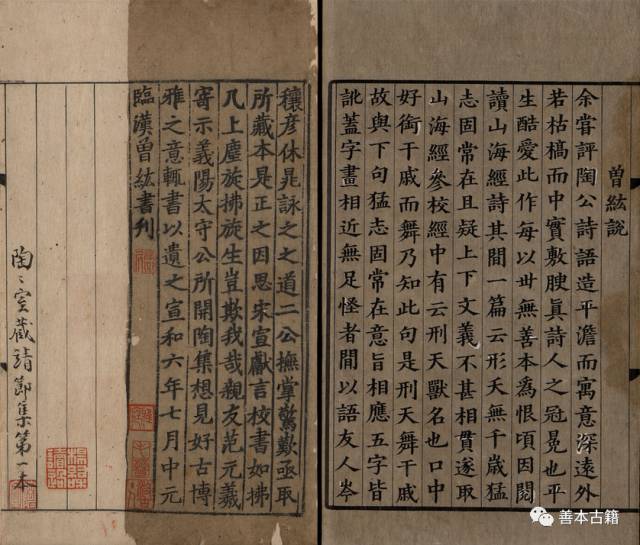 曾紘說
余嘗評陶公詩語造平澹而寓意深遠外
若枯槁而中實敷腴真詩人之冠冕也平
生酷愛此作每以世無善本為恨頃因閱
讀山海經詩其間一篇云形夭無千歲猛
志固常在且疑上下文義不甚相貫遂取
山海經參校經中有云刑天獸名也口中
好銜干戚而舞乃知此句是刑天舞干戚
故與下句猛志固常在意旨相應五字皆
訛蓋字畫相近無足怪者間以語友人岑
穰彥休晁詠之之道二公撫掌驚歎亟取
所藏本是正之因思宋宣獻言校書如拂
几上塵旋拂旋生豈欺我哉親友范元羲
寄示義陽太守公所開陶集想見好古博
雅之意輒書以遺之宣和六年七月中元
臨漢曾紘書刊
陶〻室藏靖節集第一本
善本古籍